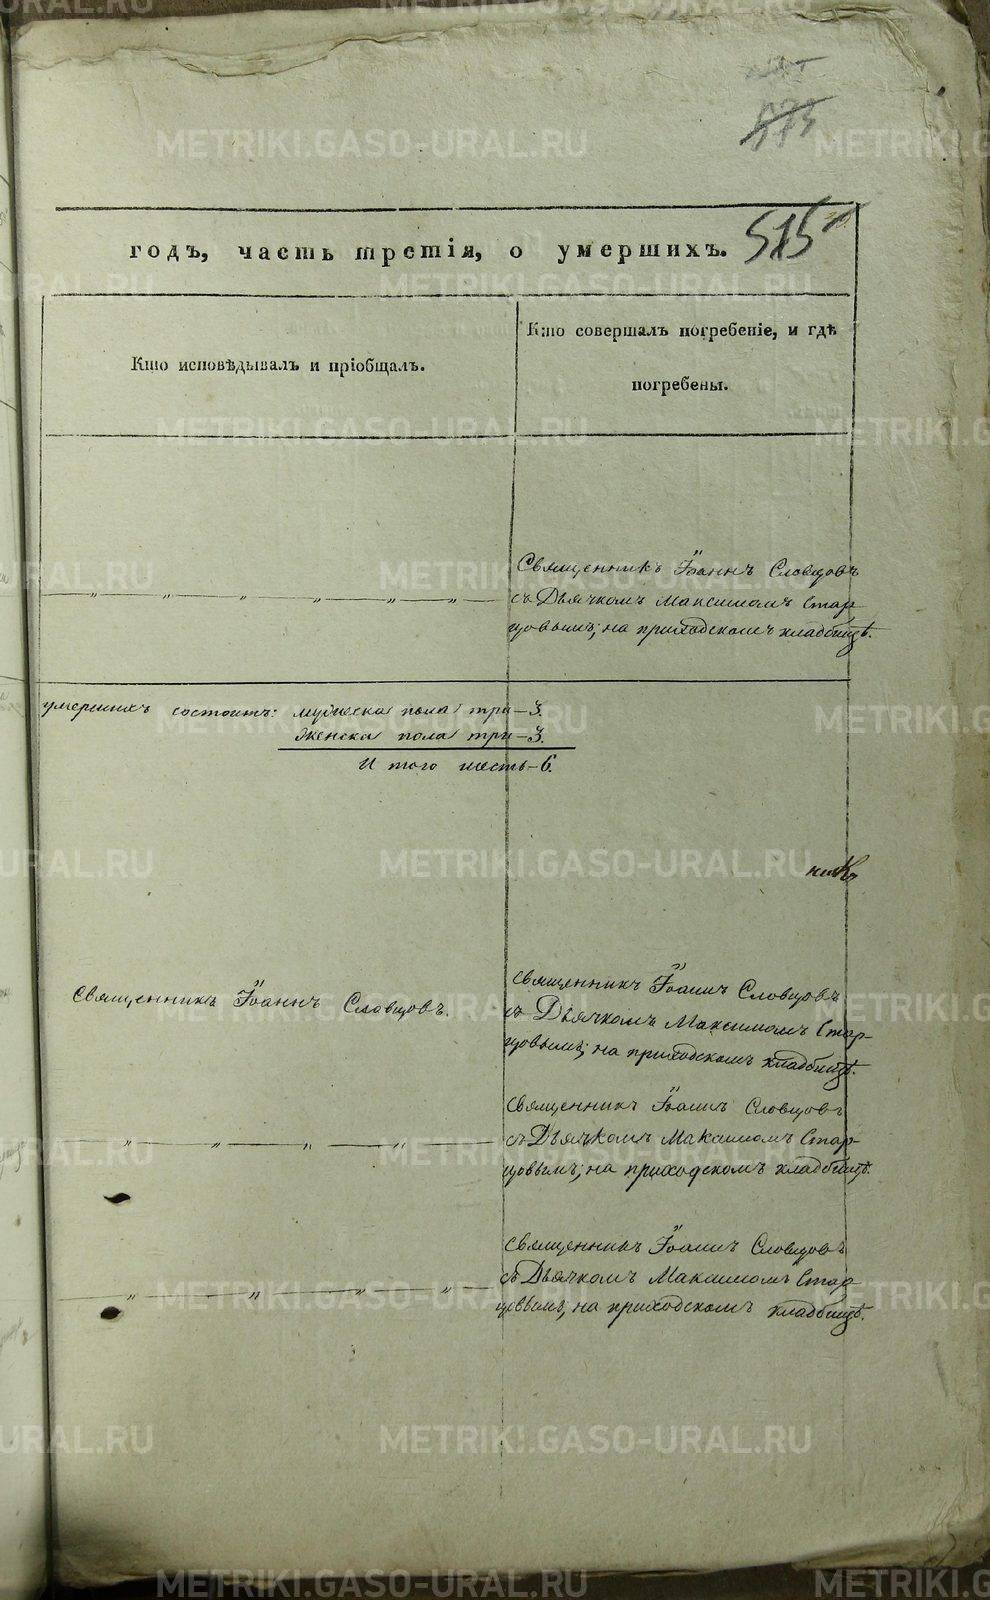 575
515
годъ, часть третія, о умершихъ.
Кто исповѣдывалъ и пріобщалъ.
Кто совершалъ погребеніе, и гдѣ
погребены.
Священникъ Іоаннъ Словцовъ
съ Дьячкомъ Максимомъ Стар-
цовымъ; на приходскомъ кладбищѣ.
умершихъ состоитъ: мужеска пола три – 3.
Женска пола три – 3.
И того шесть – 6.
Священникъ Іоаннъ Словцовъ.
Священникъ Іоаннъ Словцовъ
съ Дьячкомъ Максимомъ Стар-
цовымъ; на приходскомъ кладбищѣ.
Священникъ Іоаннъ Словцовъ
съ Дьячкомъ Максимомъ Стар-
цовымъ; на приходскомъ кладбищѣ.
Священникъ Іоаннъ Словцовъ
съ Дьячкомъ Максимомъ Стар-
цовымъ; на приходскомъ кладбищѣ.
METRIKI.GASO-URAL.RU